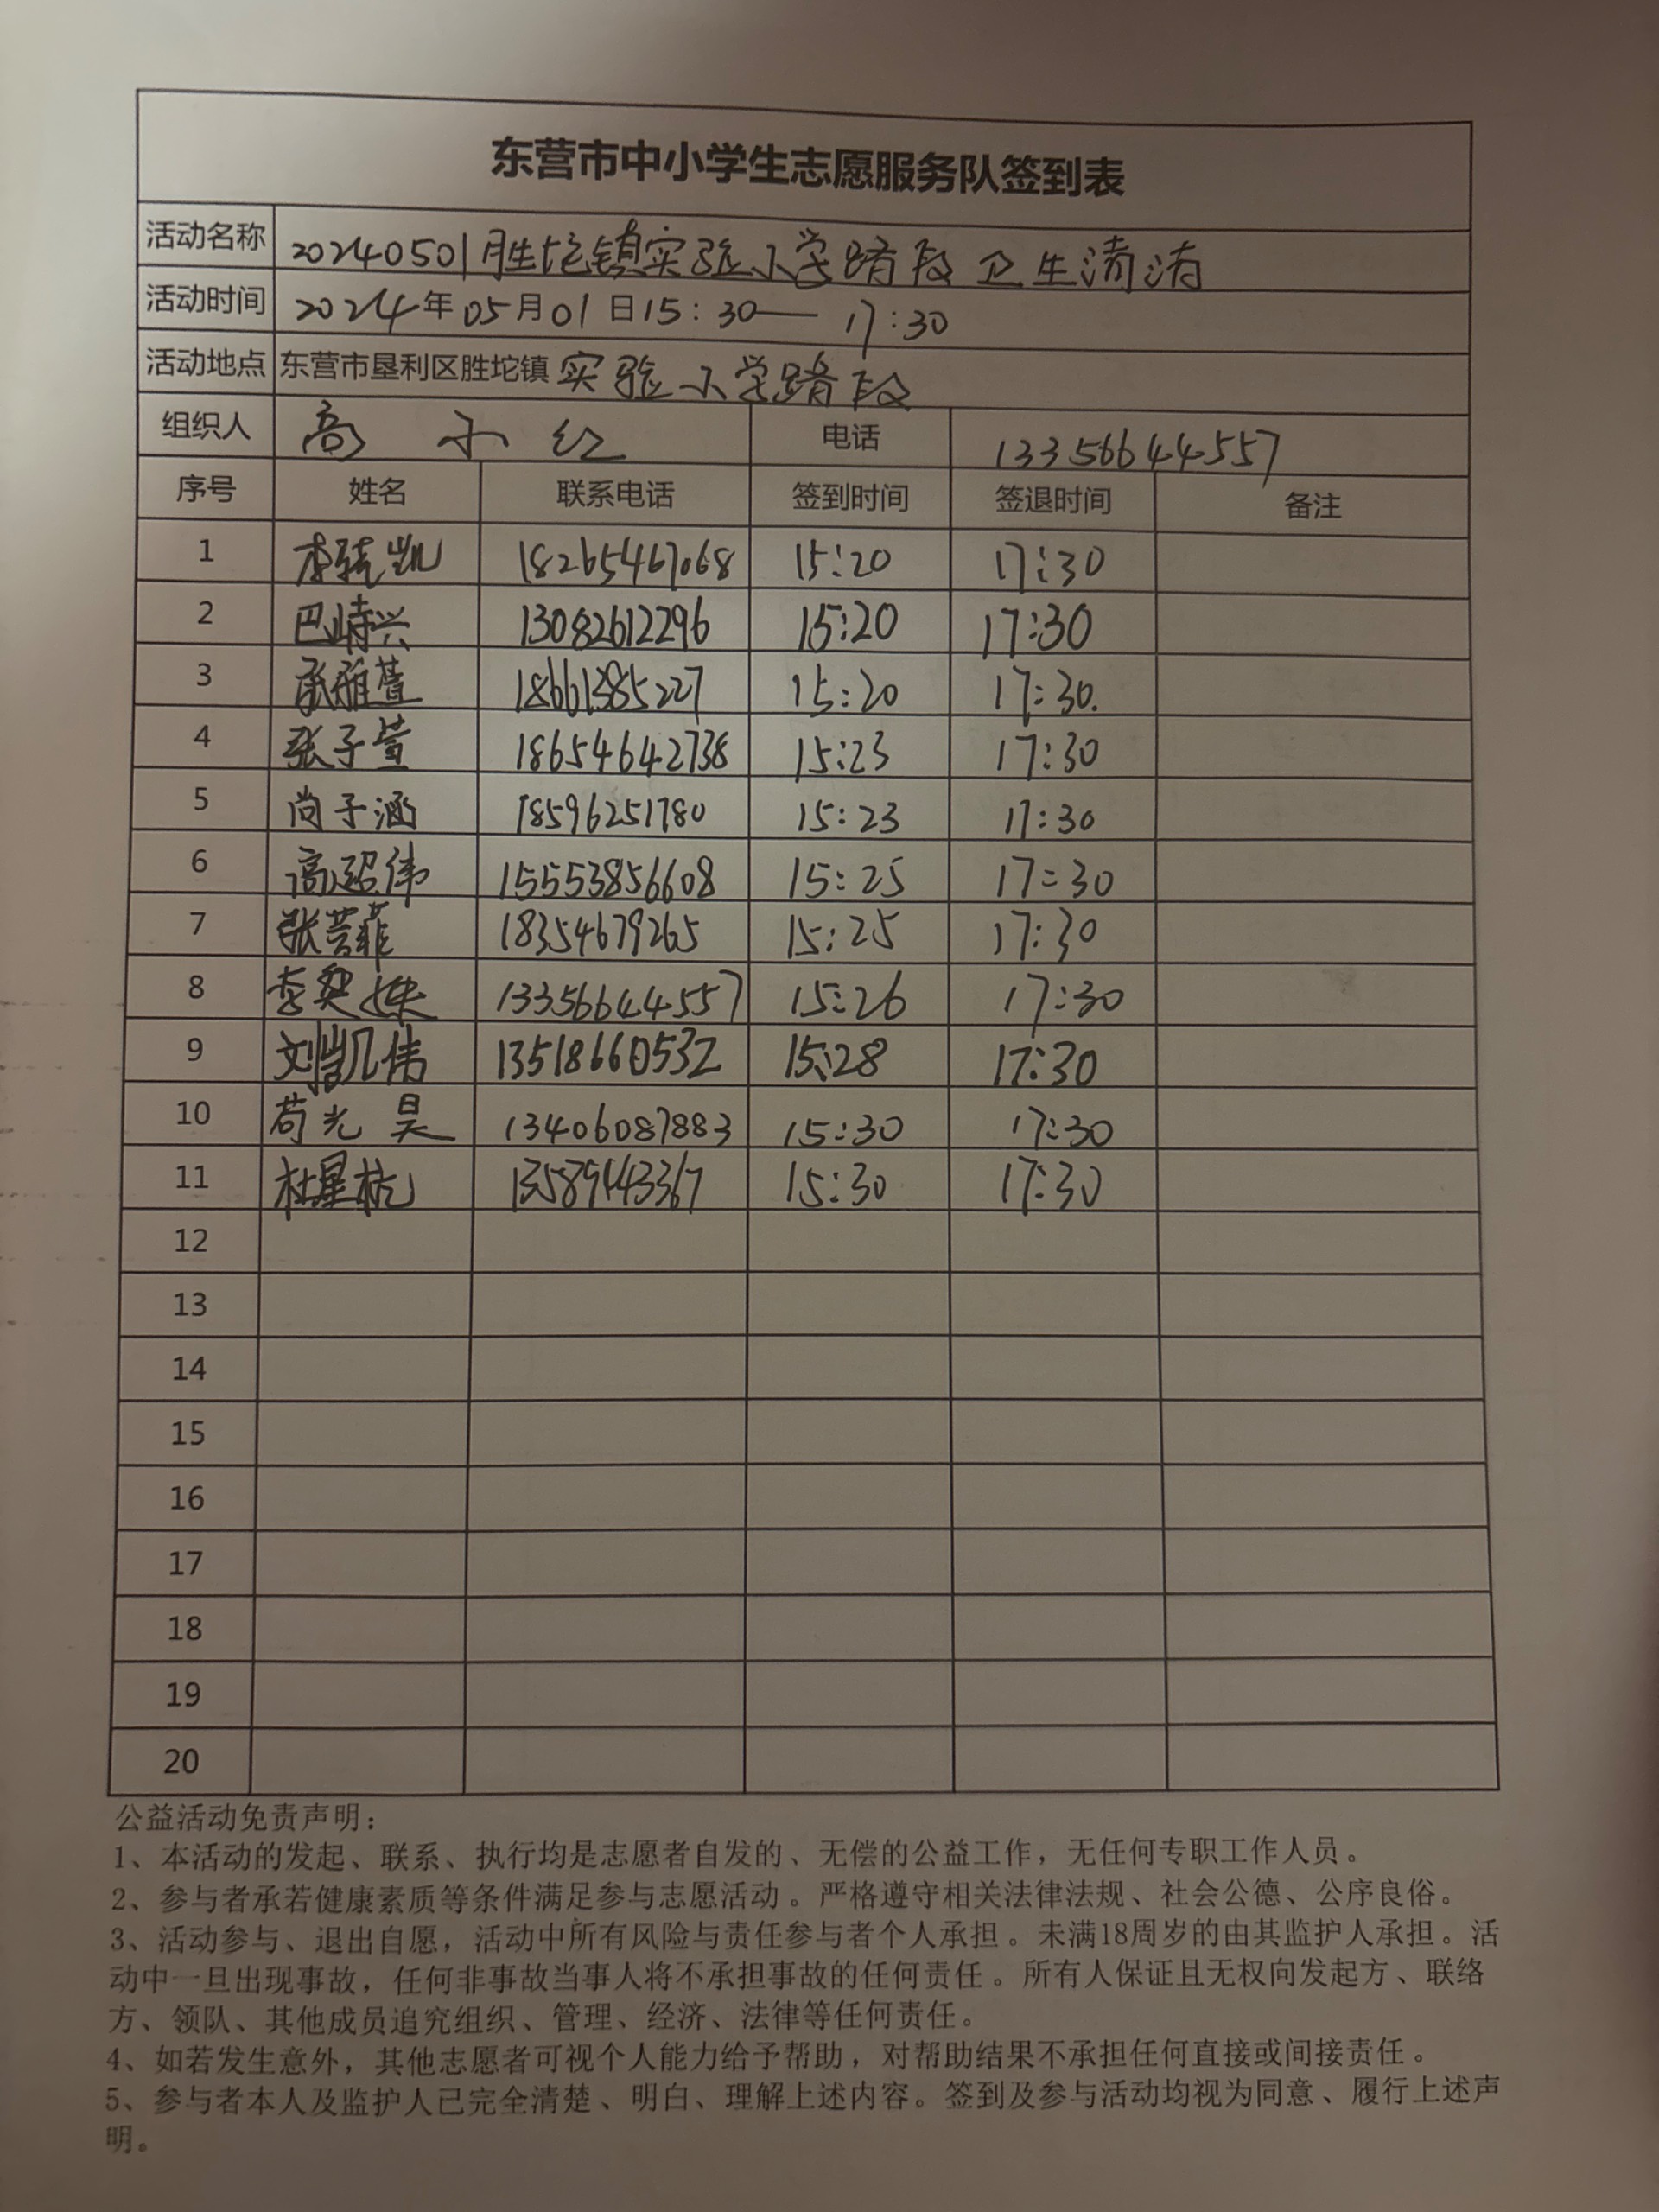 东营市中小学生志愿服务队签到表
活动名称 20240501胜坨镇实验小学路段卫生清洁
活动时间 2024年05月01日15:30—17:30
活动地点 东营市垦利区胜坨镇 实验小学路段
组织人 高小红 电话 13356644557
序号 姓名 联系电话 签到时间 签退时间 备注
1 李骐凯 18265467068 15:20 17:30
2 巴峙兴 13082612296 15:20 17:30
3 雅萱 18661385227 15:20 17:30.
4 张子萱 18654642738 15:23 17:30
5 尚子涵 18596251780 15:23 17:30
6 高超伟 15553856608 15:25 17:30
7 张芸菲 18354679265 15:25 17:30
8 李奕姝 13356644557 15:26 17:30
9 刘凯伟 13518660532 15:28 17:30
10 苟光昊 13406087883 15:30 17:30
11 杜星杭 13589443367 15:30 17:30
12
13
14
15
16
17
18
19
20
公益活动免责声明：
1、本活动的发起、联系、执行均是志愿者自发的、无偿的公益工作，无任何专职工作人员。
2、参与者承若健康素质等条件满足参与志愿活动。严格遵守相关法律法规、社会公德、公序良俗。
3、活动参与、退出自愿，活动中所有风险与责任参与者个人承担。未满18周岁的由其监护人承担。活
动中一旦出现事故，任何非事故当事人将不承担事故的任何责任。所有人保证且无权向发起方、联络
方、领队、其他成员追究组织、管理、经济、法律等任何责任。
4、如若发生意外，其他志愿者可视个人能力给予帮助，对帮助结果不承担任何直接或间接责任。
5、参与者本人及监护人已完全清楚、明白、理解上述内容。签到及参与活动均视为同意、履行上述声
明。